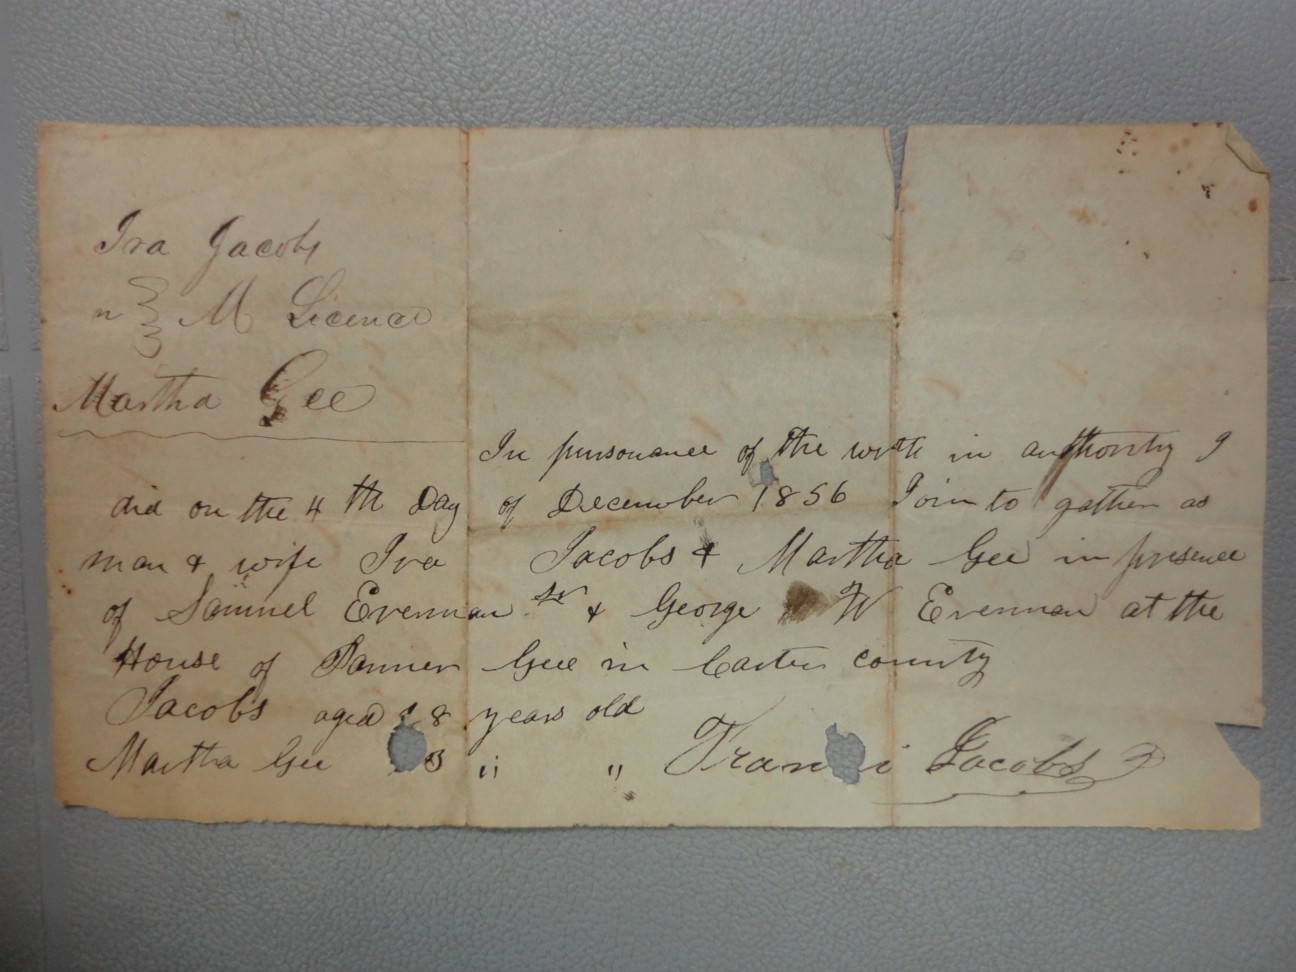 Ira Jacobs
n M Licence
Martha Gee
In pursonance of the with in authority I
did on the 4 th Day of December 1856 Join to gather as
man & wife Ira Jacobs & Martha Gee in presence
of Samuel Evenman Sr & George W Evenman at the
House of Gee in Carter county
Jacobs aged 8 years old
Martha Gee 3 " " Jacobs